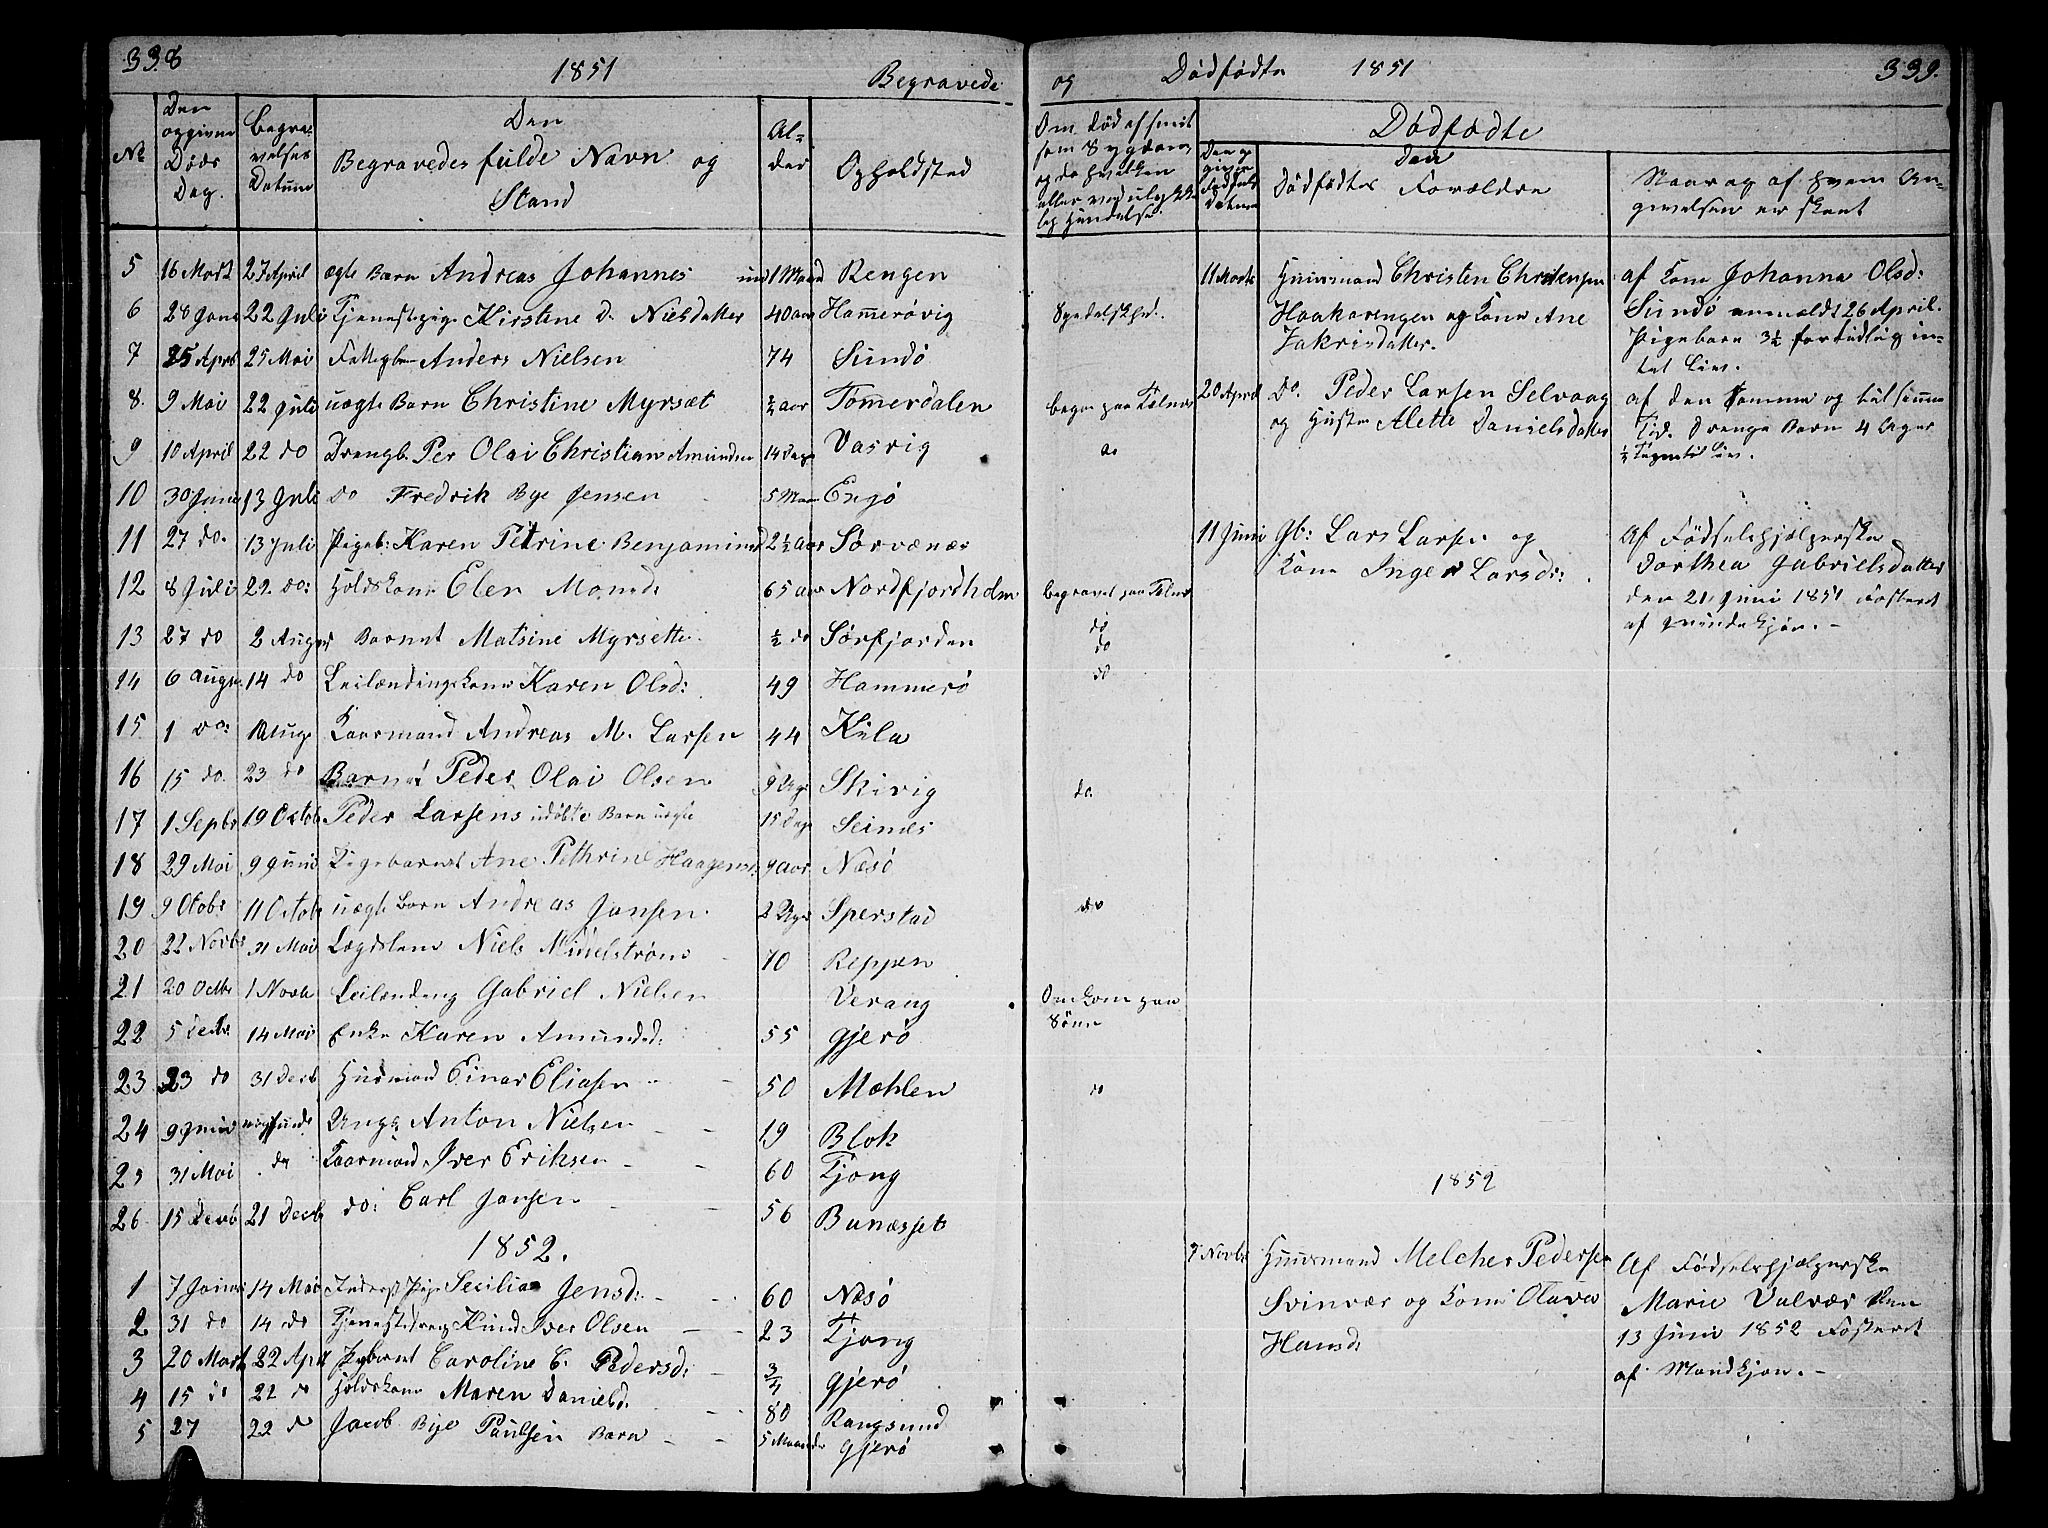 338
1851
Begravede
No
Den opgivne Døds Dag.
Begravelses Datum
Den Begravedes fulde Navn og Stand
Alder
Opholdsted
5 16 Mart 27 April ægte Barn Andreas Johannes 1 Maaned Rengen
6 28 Juni 22 Juli Tjenestepige Kirstine D. Nielsdatter 40 aar Hammerøvig
7 25 April 25 Mai Anders Nielsen 74 Sundø
8. 9 Mai 22 Juli uægte Barn Christine Myrsæt ¾ aar Tømmerdalen
9 10 April 22 do Drengb. Per Olai Christian Amundsen 14 Dage Vasvig
10 30 Juni 13 Juli do Fredrik Bye Jensen 5 Maan
11 27 do. 13 Juli Pigeb: Karen Petrine Benjamins 2½ aar Sørværnæs
12 8 Juli 22 do: Holdskone Elen Monsd: 65 aar Nordfjordholm
13 27 do 2 August Barnet Matsine Myrsette ½ do Sørfjorden
14 6 August 14 do Leilændingskone Karen Olsd: 49 Hammerø
15. 1 do: Aug Kaarmand Andreas M. Larsen 44 Kila
16 15 do. 23 do Barnet Peder Olai Olsen 9 Uger Skivig
17 1 Septbr 19 Octob Peder Larsens udøbte Barn uægte 15 Dage Seines
18 29 Mai 9 Juni Pigebarnet Ane Pethrine Haagensd: 9 aar Næsø
19 9 Octobr 11 Octobr uægte Barn Andreas Jansen 2 Uger Sperstad
20 22 Novbr 31 Mai Lægdslem Niels Middelstrøm 70 Reppen
21 20 Octbr 1 Novb Leilænding Gabriel Nielsen Verang
22 5 Decbr 14 Mai Enke Karen Amundsd: 55 Gjerø
23. 23 do 31 Decb Husmand Einar Eliasen 50 Mæhlen
24 9 Juni Unge Anton Nielsen 19 Blok
25 31 Mai do Kaarmand Iver Eriksen 60 Tjong
26 15 Decb 21 Decb do: Carl Jansen 56 Bunæsset
1852.
1 7 Januar 14 Mai Secilia Jensd: 60 Næsø
2 31 do 14 do Tjenestedreng Knud Iver Olsen 23 Tjong
3 20 Mart 22 April Caroline C. Pedersd: ¾ Gjerø
4 15 do 22 do Holdskone Maren Danielsd. 80 Rangsund
5 27 22 do Jacob Bye Paulsen Barn 5 Maaneder Gjerø
og
Dødfødte
1851
339.
Om død af smitsom Sygdom og da hvilken eller ved ulykkelig Hændelse.
Dødfødte
Den opgivne Fødsels Datum
Den Dødfødtes Forældre
Naar og af hvem Angivelsen er skeet
Spedalskhed.
begr. paa Tølnes
do
begravet paa Tølnes
do
do
do
do.
do
Omkom paa Søen
do
11 Marts Huusmand Christen Christensen
Haakarengen og Kone Ane
Zakrisdatter.
af Kone Johanna Olsd:
Sundø anmeldt 26 April.
Pigebarn 3½ fortidlig in-
tet Liv.
20 April do. Peder Larsen Selvaag
og Hustru Alette Danielsdatter
af den samme og til samme
Tid. Drenge Barn 4 Uger
11 Juni Gb: Lars Larsen og
Kone Inger Larsd:
Af Fødselshjelperske
Dorthea Gabrielsdatter
den 21 Juni 1851 Fosteret
af Qvindekjøn. -
1852
7 Novbr Huusmand Melcher Pedersen
Svinvær og Kone Olava
Hansd:
Af Fødselshjælperske
Marie Valvær den
13 Juni 1852 Fosteret
af Mandkjøn. -